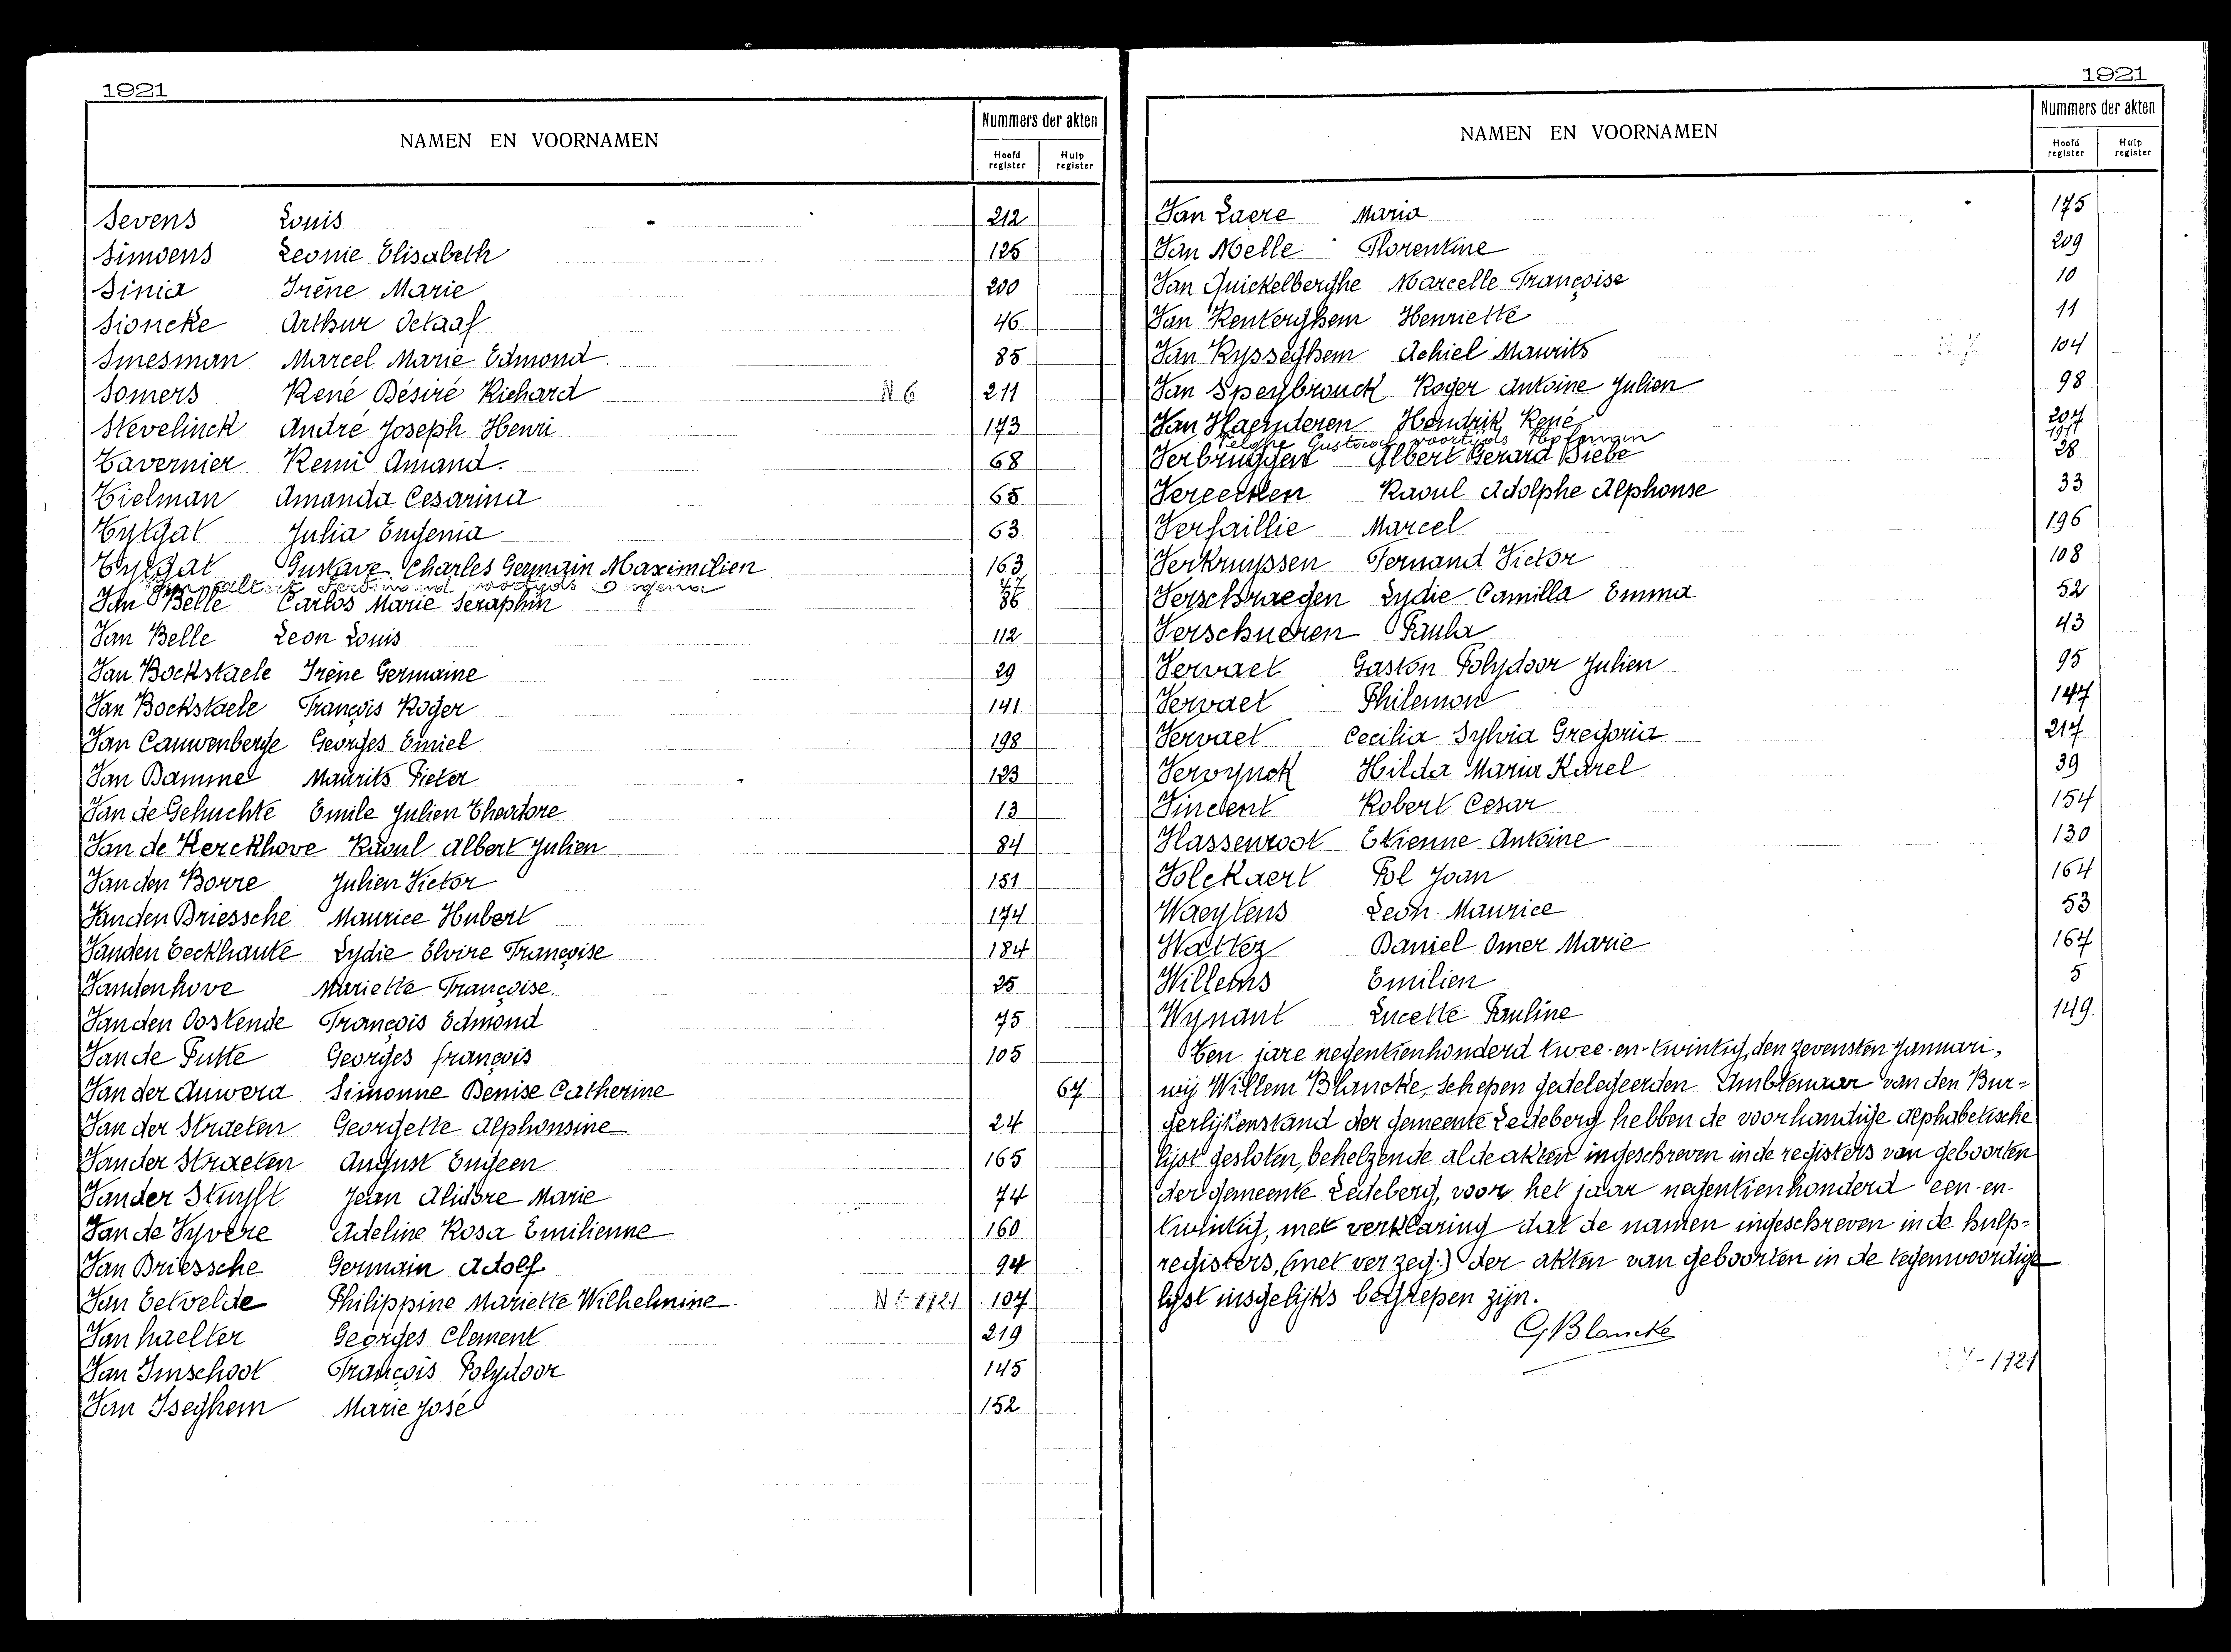 1921
NAMEN EN VOORNAMEN
Nummers der akten
Hoofd register
Hulp register
Sevens Louis 212
Simoens Leonie Elisabeth 125
Sinia Irène Marie 200
Sioncke Arthur Octaaf 46
Smesman Marcel Marie Edmond. 85
Somers René Désiré Richard N 6 211
Stevelinck André Joseph Henri 173
Tavernier Remi Amand. 68
Tielman Amanda Cesarina 65
Tytgat Julia Eugenia 63
Tytgat Gustave Charles Germain Maximilien 163
Ferdinand voortijds
Van Belle Carlos Marie Seraphin 86
Van Belle Leon Louis 112
Van Bockstaele Irène Germaine 29
Van Bockstaele François Roger 141
Van Cauwenberge Georges Emiel 198
Van Damme Maurits Pieter 123
Van de Gehuchte Emile Julien Theodore 13
Van de Kerckhove Raoul Albert Julien 84
Van den Borre Julien Victor 151
Van den Driessche Maurice Hubert 174
Van den Eeckhaute Lydie Elvire Françoise 184
Vandenhove Mariette Françoise. 25
Van den Oostende François Edmond 75
Van de Putte Georges françois 105
Van der Auwera Simonne Denise Catherine 67
Van der Straeten Georgette Alphonsine 24
Van der Straeten August Eugeen 165
Van der Stuyft Jean Alidore Marie 74
Van de Vyvere Adeline Rosa Emilienne 160
Van Driessche Germain Adolf 94
Van Eetvelde Philippine Mariette Wilhelmine. 107
Van haelter Georges Clement 219
Van Imschoot François Polydoor 145
Van Iseghem Marie José 152
1921
NAMEN EN VOORNAMEN
Nummers der akten
Hoofd register
Hulp register
Van Laere Maria 175
Van Melle Florentine 209
Van Quickelberghe Marcelle Françoise 10
Van Renterghem Henriette 11
Van Rysseghem Achiel Maurits N 7 104
Van Speybrouck Roger Antoine Julien 98
Van Vlaenderen Hendrik René 207
Velghe Gustaaf voortijds Hofman
Verbruggen Albert Gerard Biebe 28
Vereecken Raoul Adolphe Alphonse 33
Verfaillie Marcel 196
Verkruyssen Fernand Victor 108
Verschraegen Lydie Camilla Emma 52
Verschueren Paula 43
Vervaet Gaston Polydoor Julien 95
Vervaet Philemon 147
Vervaet Cecilia Sylvia Gregoria 217
Vervynck Hilda Maria Karel 39
Vincent Robert Cesar 154
Vlassenroot Etienne Antoine 130
Volckaert Pol Joan 164
Waeytens Leon Maurice 53
Wattez Daniel Omer Marie 167
Willems Emilien 5
Wynant Lucette Pauline 149.
Ten jare negentienhonderd twee-en-twintig, den zevensten Januari,
wij Willem Blancke, Schepen gedelegeerden Ambtenaar van den Bur=
gerlijkenstand der gemeente Ledeberg hebben de voorhandige alphabetische
lijst gesloten, behelzende al de akten ingeschreven in de registers van geboorten
der gemeente Ledeberg, voor het jaar negentienhonderd een-en-
twintig, met verklaring dat de namen ingeschreven in de hulp=
registers, (met verzeg:) der akten van geboorten in de tegenwoordige
lijst insgelijks begrepen zijn.
G Blancke